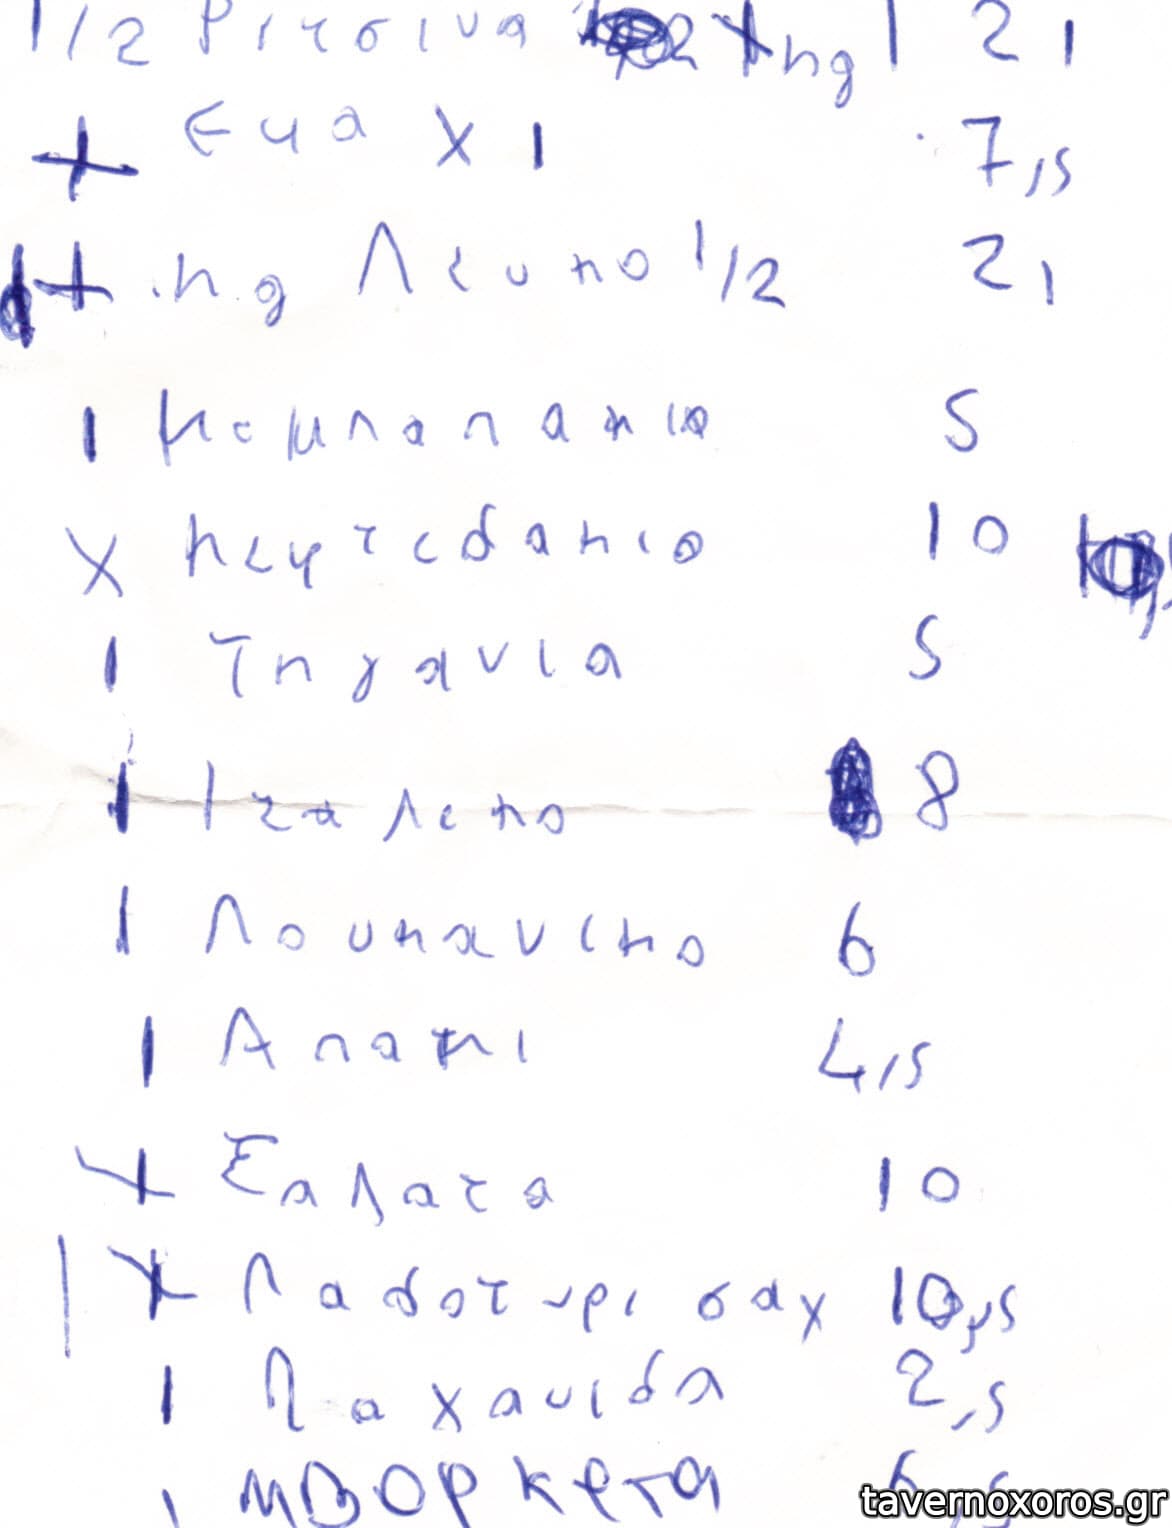 1/2 Ρετσινα κg 1 21
+ Εμα Χ 1 7,5
+ κg Λευκο 1/2 21
1 Κομπαπακια 5
Χ κεφτεδακιο 10
1 Τηγανια 5
1 8
1 Λουκανικο 6
1 Απακι 4,5
+ Σαλατα 10
1 Χ Λαδοτυρι σαχ 10,5
1 Λαχανιδα 2,5
1 6,5
tavernoxoros.gr